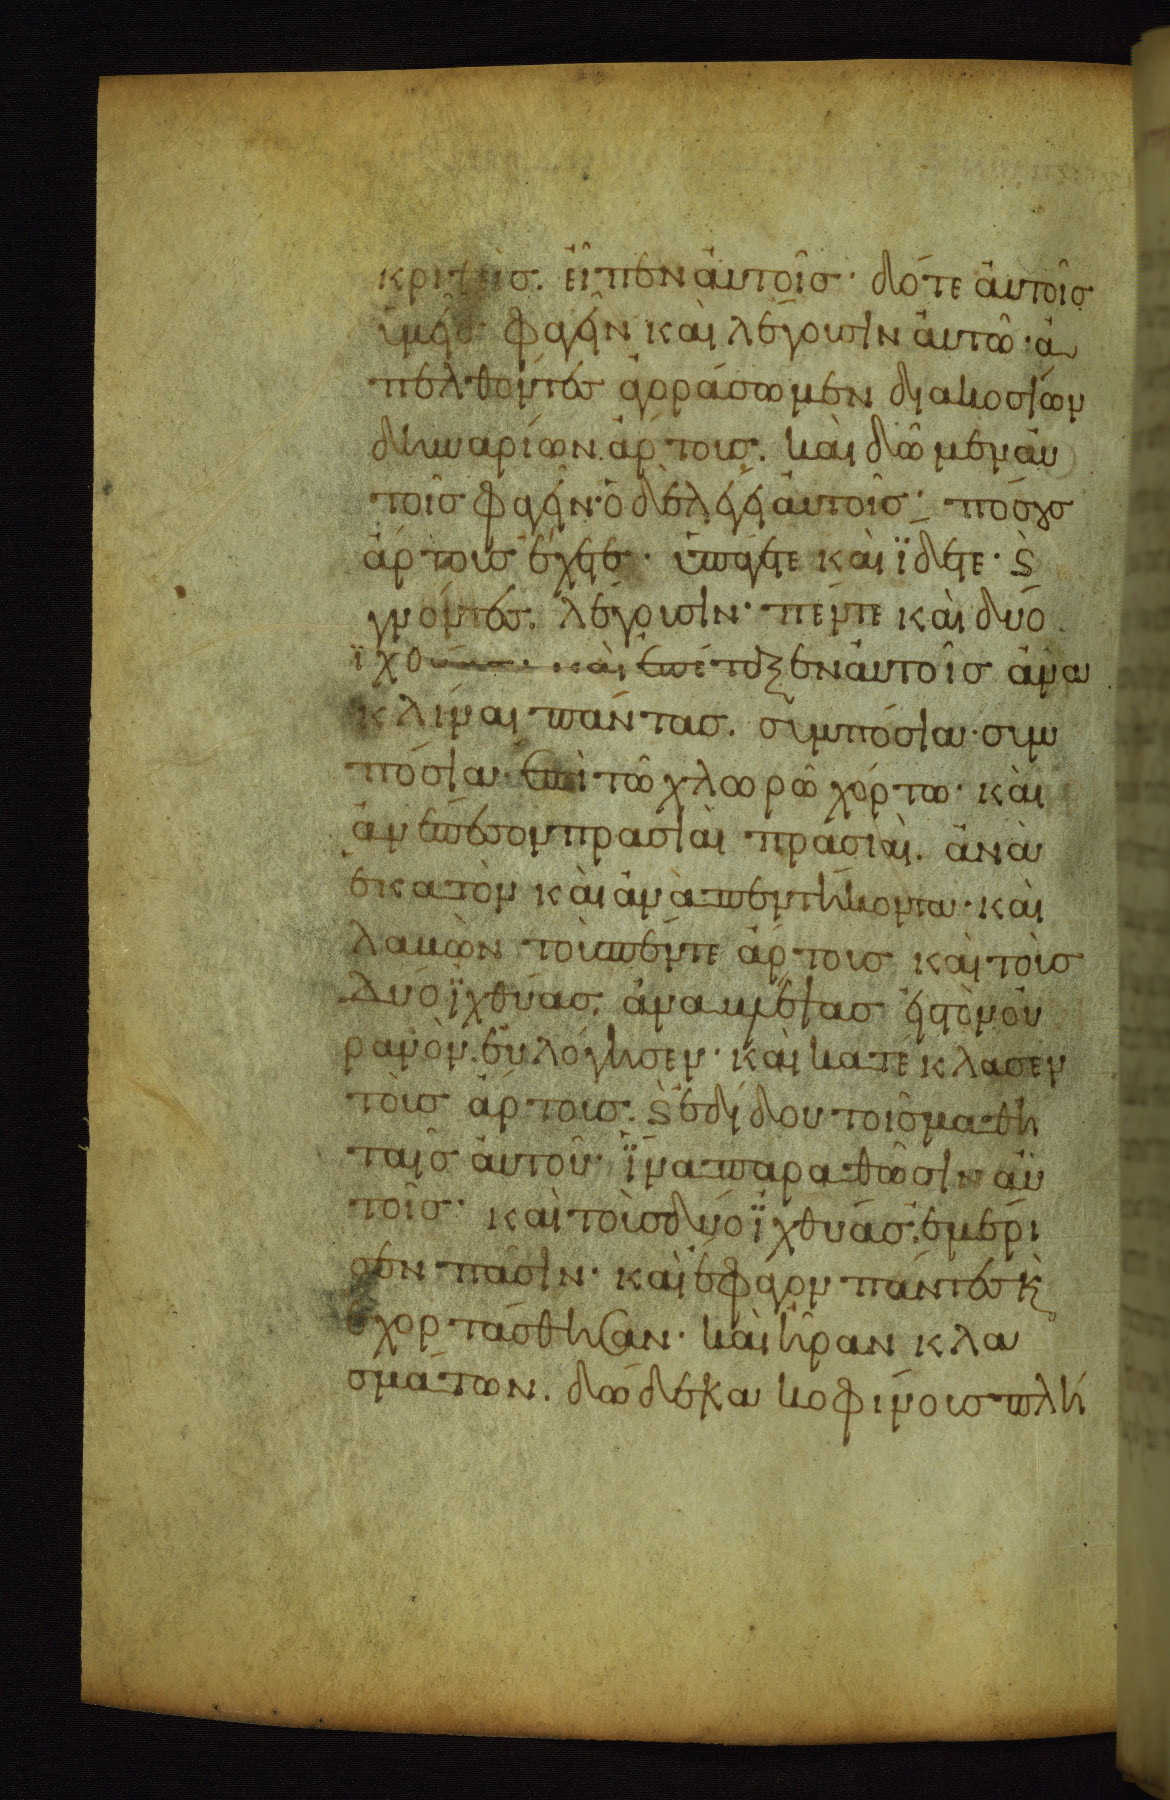 κριθεὶσ. εἶπεν ἀυτοῖσ· δότε ἀυτοῖσ
ὑμεῖσ φαγεῖν καὶ λέγουσιν ἀυτῶ· ἀ
πελθόντεσ ἀγοράσωμεν διακοσίων
δηναρίων ἄρτουσ. καὶ δῶμεν ἀυ
τοῖσ φαγεῖν· ὁ δὲ λέγει ἀυτοῖσ· πόσουσ
ἄρτουσ ἔχετε· ὑπάγετε καὶ ἴδετε· ϗ
γνόντεσ. λέγουσιν· πέντε καὶ δύο
ἰχθύασ· καὶ ἐπέταξεν ἀυτοῖσ ἀνα
κλίναι πάντασ. συμπόσια· συμ
πόσια· ἐπὶ τῶ χλωρῶ χόρτω· καὶ
ἀνέπεσον πρασιαὶ πρασιαὶ. ἀνὰ
ἑκατὸν καὶ ἀνὰ πεντήκοντα· καὶ
λαβὼν τοὺσ πέντε ἄρτουσ καὶ τοὺσ
δύο ἰχθύασ. ἀναβλέψασ εἰσ τὸν ὀυ
ρανὸν. ἐυλόγησεν· καὶ κατέκλασεν
τοὺσ ἄρτουσ. ϗ ἐδίδου τοῖσ μαθη
ταῖσ ἀυτοῦ· ἵνα παραθῶσιν ἀυ
τοῖσ· καὶ τοὺσ δύο ἰχθύασ. ἐμέρι
σεν πᾶσιν· καὶ ἔφαγον πάντεσ ϗ
ἐχορτάσθησαν· καὶ ἦραν κλα
σμάτων. δώδεκα κοφίνουσ πλή